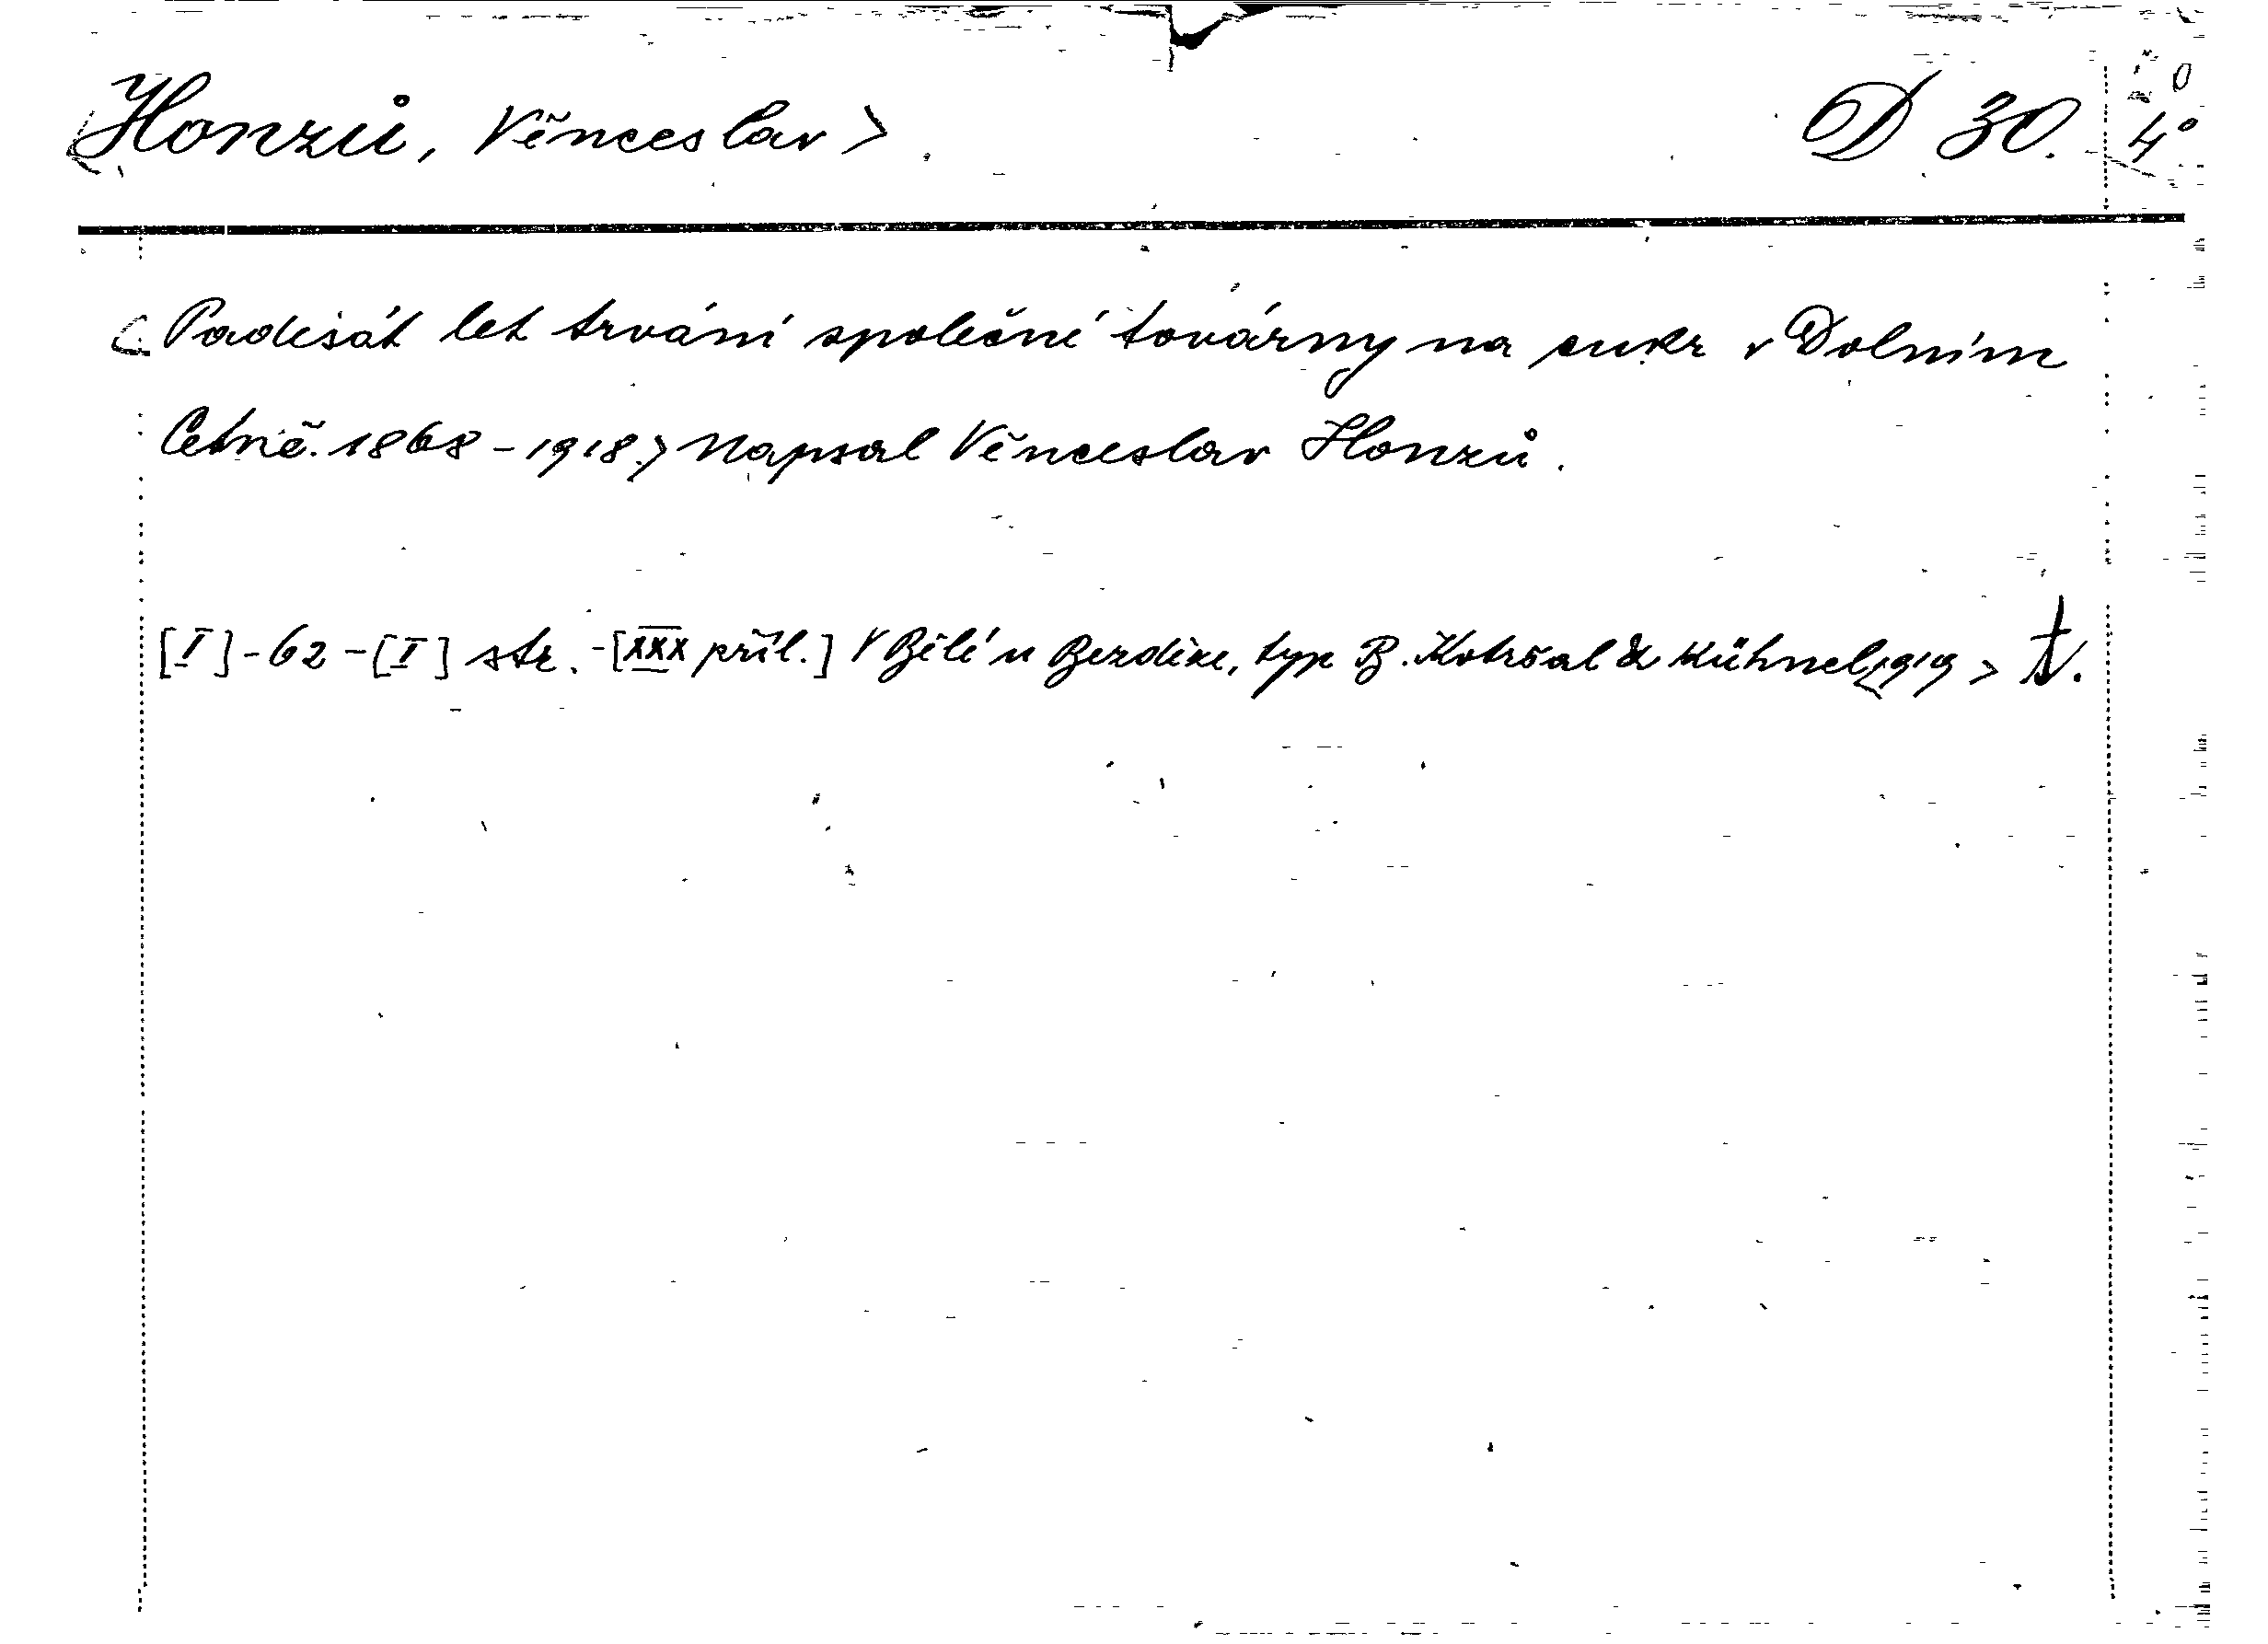 <Honzů, Věnceslav> D 30. 4°
<Padesát let trvání společné továrny na cukr v Dolním
Cetně. 1868-1918.> Napsal Věnceslav Honzů.
[I]-62-[I] str. -[XXX příl.] V Bělé u Bezděze, typ B. Kotršal & Kühnel <1919> tv.